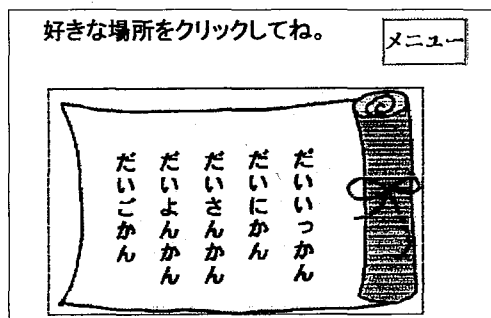 好きな場所をクリックしてね。
メニュー
だいいっかん
だいにかん
だいさんかん
だいよんかん
だいごかん